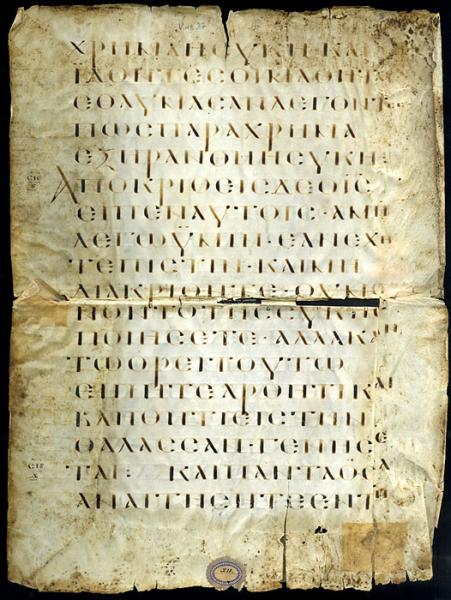 ΧΡΗΜΑΗϹΥΚΗ·ΚΑΙ
ΙΔΟΝΤΕϹΟΙΜΑΘΗΤΑ
ΕΘΑΥΜΑϹΑΝΛΕΓΟΝΤΕϹ
ΠΩϹΠΑΡΑΧΡΗΜΑ
ΕΞΗΡΑΝΘΗΗϹΥΚΗ
ΑΠΟΚΡΙΘΕΙϹΔΕΟΙϹ
ΕΙΠΕΝΑΥΤΟΙϹ·ΑΜΗ
ΛΕΓΩΫΜΙΝ·ΕΑΝΕΧΗ
ΤΕΠΙϹΤΙΝ·ΚΑΙΜΗ
ΔΙΑΚΡΙΘΗΤΕ·ΟΥΜΟ
ΝΟΝΤΟΤΗϹϹΥΚΗϹ
ΠΟΙΗϹΕΤΕ·ΑΛΛΑΚΑΝ
ΤΩΟΡΕΙΤΟΥΤΩ
ΕΙΠΗΤΕΑΡΘΗΤΙΚΑΙ
ΒΛΗΘΗΤΙΕΙϹΤΗΝ
ΘΑΛΑϹϹΑΝ·ΓΕΝΗϹΕ
ΤΑΙ: ΚΑΙΠΑΝΤΑΟϹΑ
ΑΝΑΙΤΗϹΗΤΕΕΝΤΗ